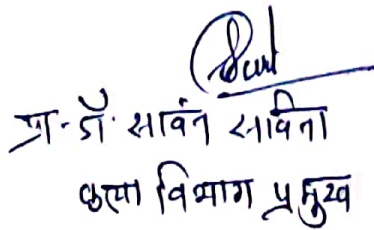 प्रा. डॉ. सावंत सविता
कला विभाग प्रमुख